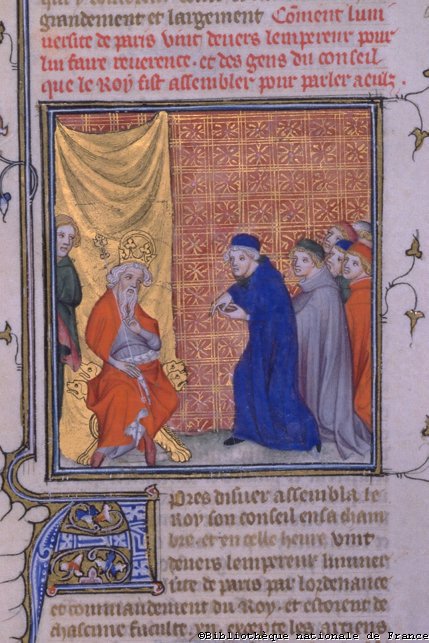 grandement et largement Coment luni
versite de paris vint devers lempereur pour
lui faire reverence. et des gens du conseil
que le Roy fist assembler pour parler a eulz.
Apres disner assembla le
Roy son conseil en sa cham
bre. et en celle heure vint
devers lempereur luniver
site de paris par lordenance
et commandement du Roy. et estoient de
chascune faculte
©Bibliothèque nationale de France